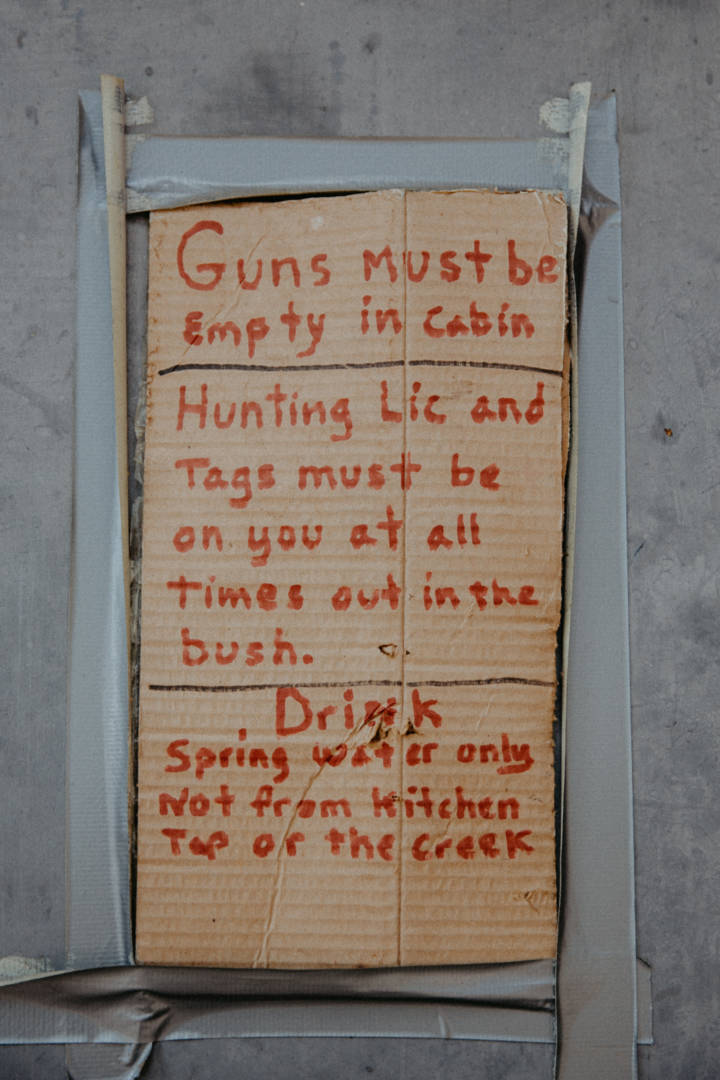 Guns must be
empty in cabin
Hunting Lic and
Tags must be
on you at all
times out in the
bush.
Drink
Spring water only
Not from Kitchen
Tap or the creek